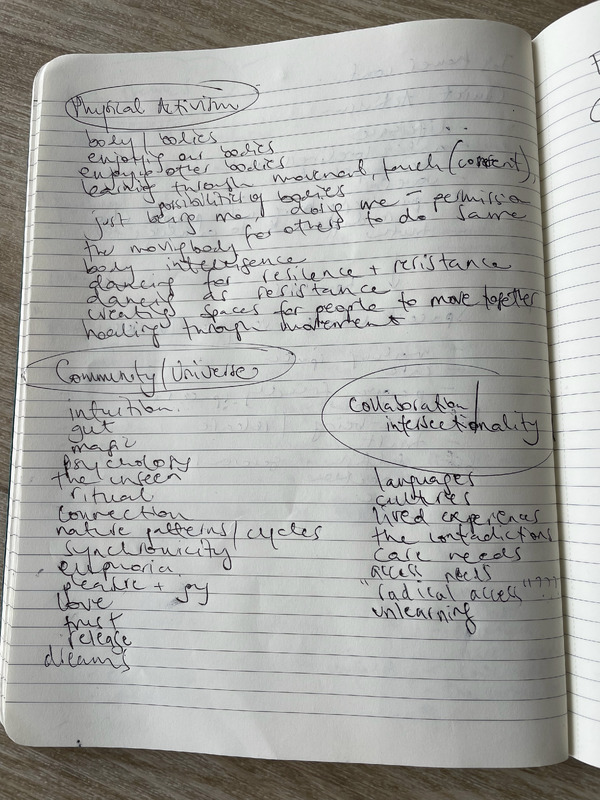 Physical Activism
body / bodies
enjoying our bodies
enjoying other bodies
learning through movement, touch (consent),
possibilities of bodies
just being me / doing me – permission
for others to do same
the moving body
body intelligence
dancing for resilence + resistance
dancing as resistance
creating spaces for people to move together
healing through movement
Community / Universe
intuition.
gut
magic
psychology
the unseen
ritual
connection
nature patterns / cycles
synchronicity
euphoria
pleasure + joy
love
trust
release
dreams
Collaboration /
intersectionality
languages
cultures
lived experiences
the contradictions
care needs
access needs
"radical access"???
unlearning